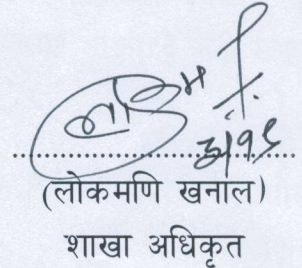 ३/१९
(लोकमणि खनाल)
शाखा अधिकृत